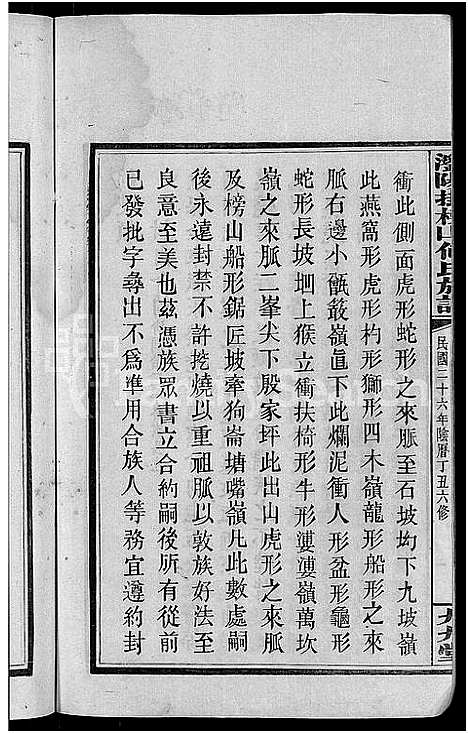 衝此側面虎形蛇形之來脈至石坡坳下九坡嶺
此燕窩形虎形杓形獅形四木嶺龍形船形之來
脈右邊小甑嶺直下此爛泥衝人形盆形龜形
蛇形長坡坳上猴立衝扶椅形牛形漊漊嶺萬坎
嶺之來脈二峯尖下殷家坪此出山虎形之來脈
及榜山船形鋸匠坡牽狗崙塘嘴嶺凡此數處嗣
後永遠封禁不許挖燒以重祖脈以敦族好法至
良意至美也茲憑族眾書立合約嗣後所有從前
已發批字尋出不爲準用合族人等務宜遵約封
民國二十六年陰曆丁丑六修